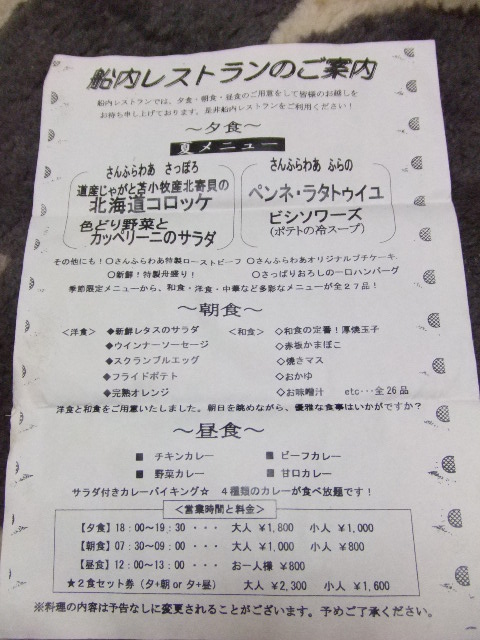 船内レストランのご案内
船内レストランでは、夕食・朝食・昼食のご用意をして皆様のお越しを
お待ち申し上げております。是非船内レストランをご利用ください！
～夕食～
夏メニュー
さんふらわあ さっぽろ
道産じゃがと苫小牧産北寄貝の
北海道コロッケ
色どり野菜と
カッペリーニのサラダ
さんふらわあ ふらの
ペンネ・ラタトゥイユ
ビシソワーズ
(ポテトの冷スープ)
その他にも！○さんふらわあ特製ローストビーフ ○さんふらわあオリジナルプチケーキ
○新鮮！特製舟盛り！ ○さっぱりおろしの一口ハンバーグ
季節限定メニューから、和食・洋食・中華など多彩なメニューが全27品！
～朝食～
<洋食> ◆新鮮レタスのサラダ <和食> ◇和食の定番！厚焼玉子
◆ウインナーソーセージ ◇赤板かまぼこ
◆スクランブルエッグ ◇焼きマス
◆フライドポテト ◇おかゆ
◆完熟オレンジ ◇お味噌汁 etc・・・全26品
洋食と和食をご用意いたしました。朝日を眺めながら、優雅な食事はいかがですか？
～昼食～
■ チキンカレー ■ ビーフカレー
■ 野菜カレー ■ 甘口カレー
サラダ付きカレーバイキング☆ 4種類のカレーが食べ放題です！
<営業時間と料金>
【夕食】18：00～19：30 ・・・ 大人 ¥1,800 小人 ¥1,000
【朝食】07：30～09：00 ・・・ 大人 ¥1,000 小人 ¥800
【昼食】12：00～13：00 ・・・ お一人様 ¥800
★2食セット券（夕+朝 or 夕+昼） 大人 ¥2,300 小人 ¥1,600
※料理の内容は予告なしに変更されることがございます。予めご了承ください。